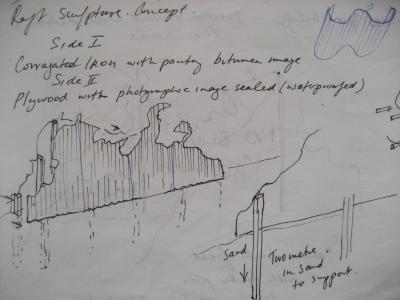 Raft Sculpture. Concept.
Side I
Corrugated IRON with painting bitumen image
Side II
Plywood with photographic image sealed (waterproofed)
Sand
Two metre.
in sand
to support.